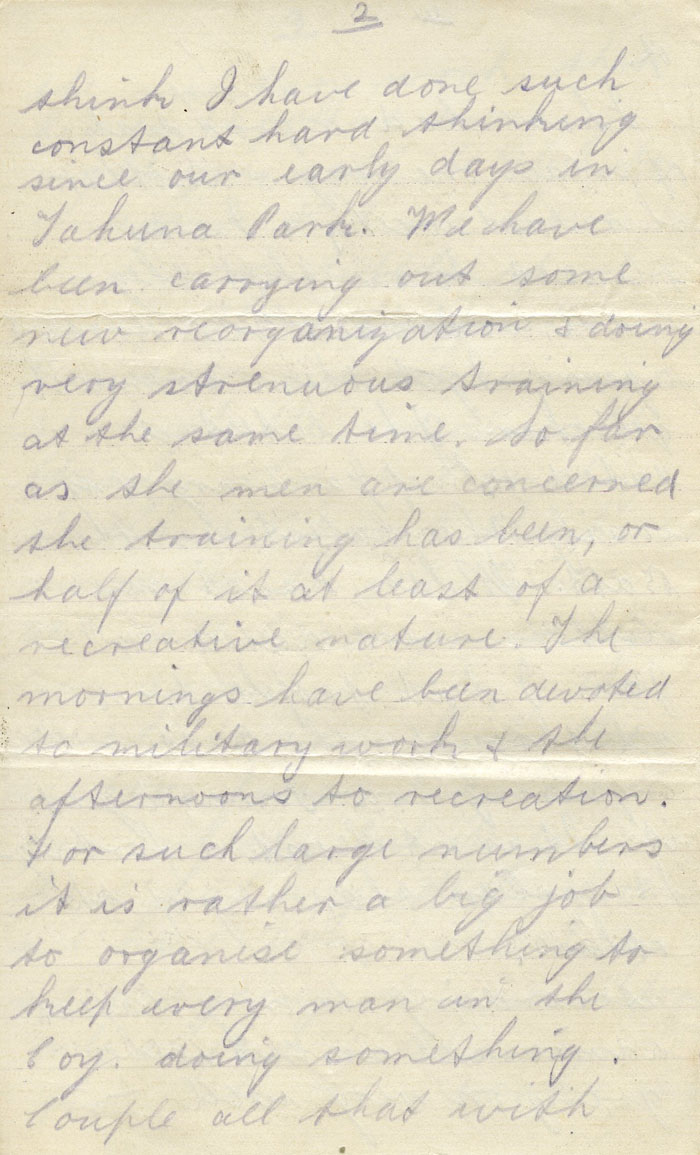 2
think I have done such
constant hard thinking
since our early days in
Tahuna Park. We have
been carrying out some
new reorganization & doing
very strenuous training
at the same time. So far
as the men are concerned
the training has been, or
half of it at least of a
recreative nature. The
mornings have been devoted
to military work & the
afternoons to recreation.
For such large numbers
it is rather a big job
to organise something to
keep every man in the
Coy. doing something.
Couple all that with